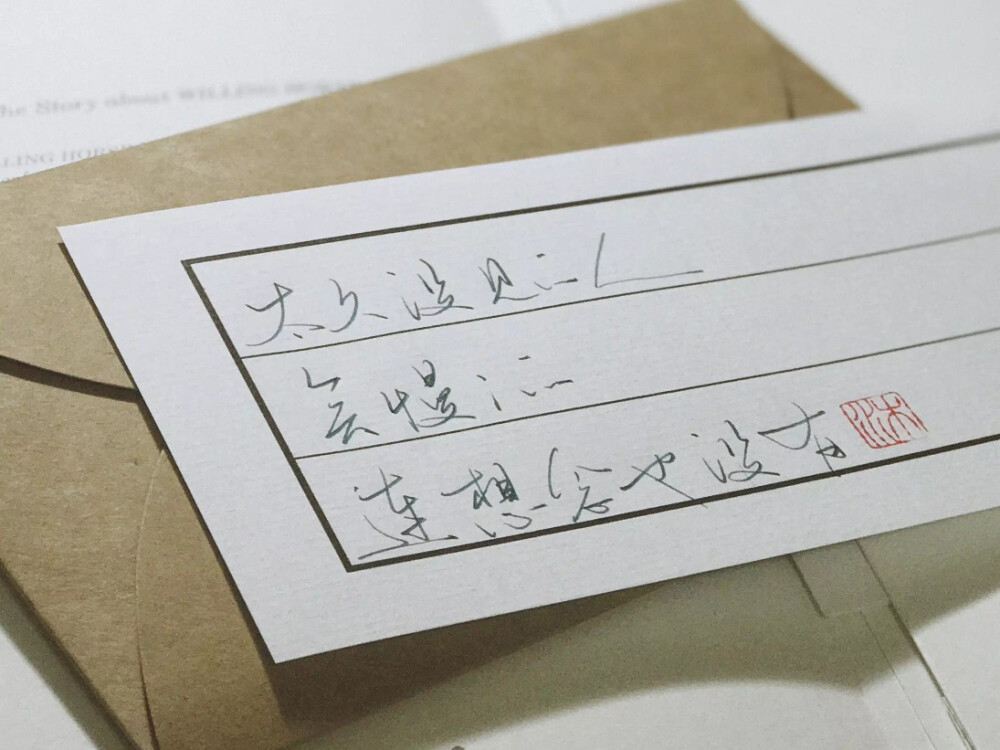 he Story about WILLING
LLING HORS
太久没见的人
会慢慢的
连想念也没有